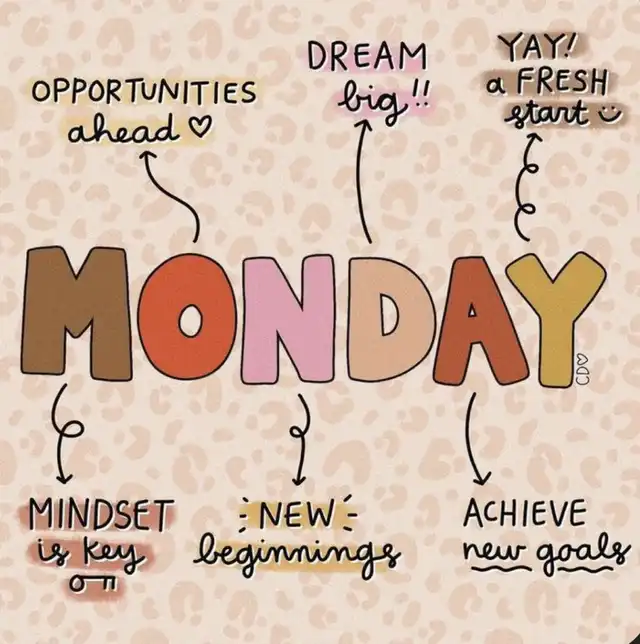 OPPORTUNITIES
ahead
DREAM
big!!
YAY!
a FRESH
start
MONDAY
CD
MINDSET
is key
NEW
beginnings
ACHIEVE
new goals